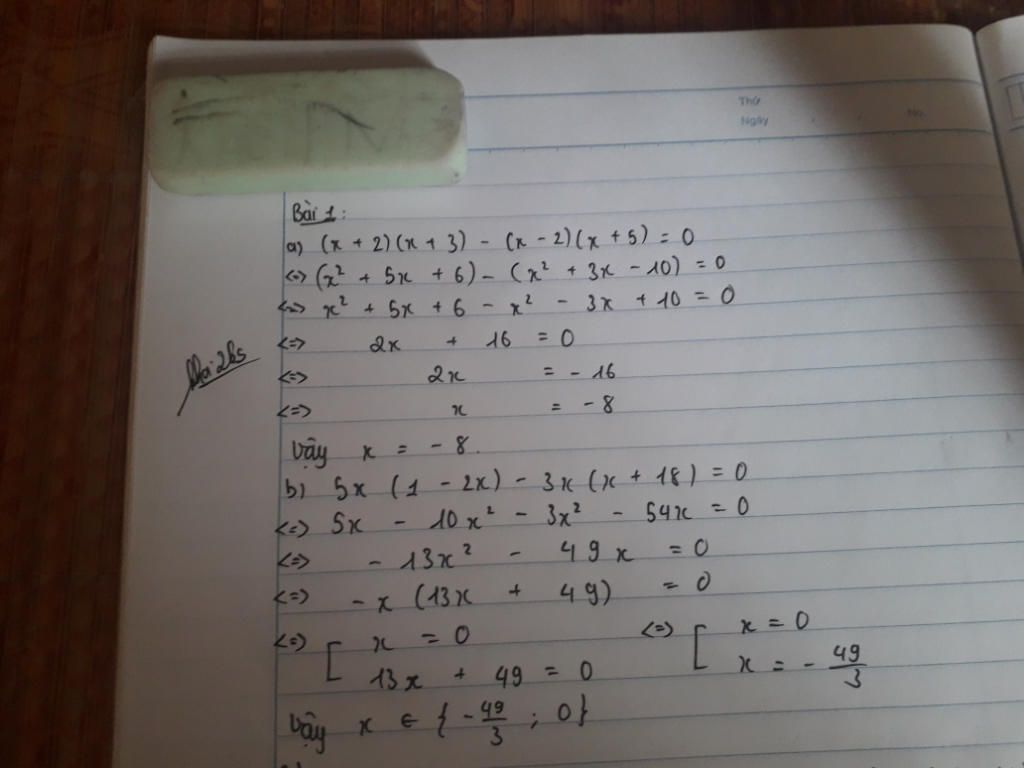 Thứ
Ngày No.
Bài 1:
a) (x + 2)(x + 3) - (x - 2)(x + 5) = 0
<=> (x² + 5x + 6) - (x² + 3x - 10) = 0
<=> x² + 5x + 6 - x² - 3x + 10 = 0
<=> 2x + 16 = 0
<=> 2x = - 16
<=> x = - 8
Vậy x = - 8.
b) 5x (1 - 2x) - 3x (x + 18) = 0
<=> 5x - 10x² - 3x² - 54x = 0
<=> - 13x² - 49x = 0
<=> - x (13x + 49) = 0
<=> [ x = 0 <=> [ x = 0
13x + 49 = 0 x = - 49/3
Vậy x ∈ { - 49/3 ; 0 }